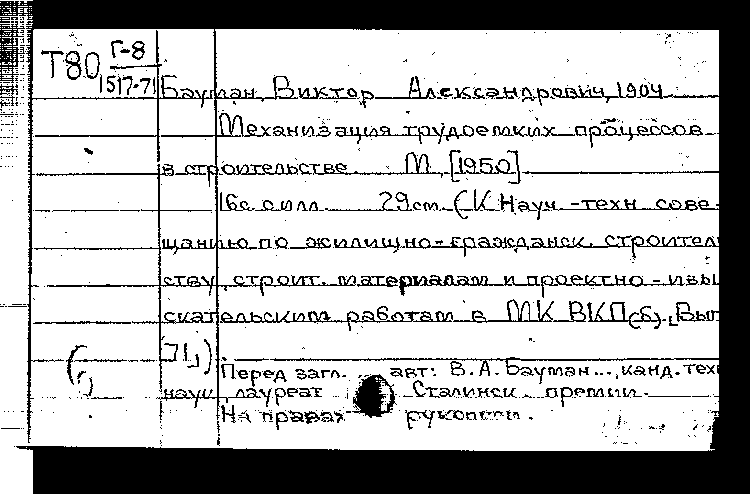 Т80 Г-8
1517-71
Бауман, Виктор Александрович, 1904
Механизация трудоемких процессов
в строительстве. М. [1950]
16с. с илл. 29см. (К Науч.-техн. сове-
щанию по жилищно-гражданск. строитель
ству, строит. материалам и проектно-изы
скательским работам в МК ВКП(б). Вып
.
Перед загл. авт: В.А. Бауман..., канд. тех
наук, лауреат Сталинск. премии.
На правах рукописи.